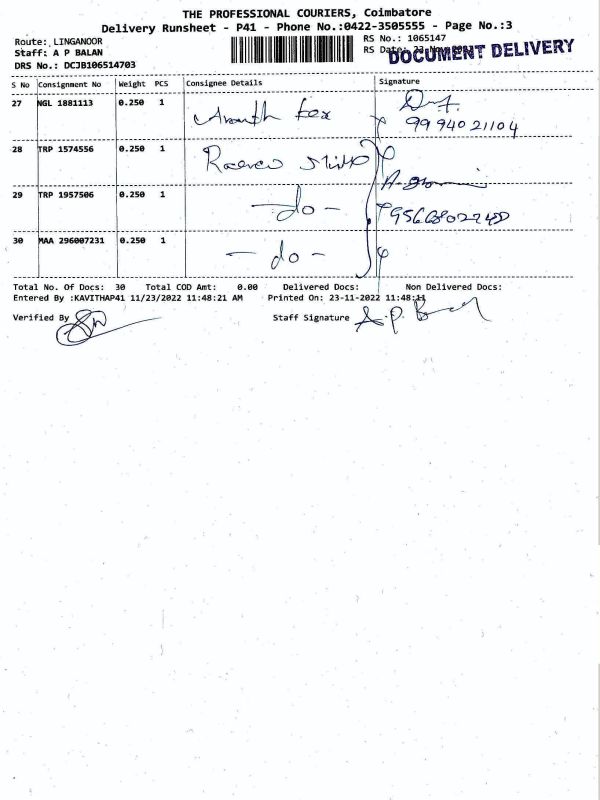 THE PROFESSIONAL COURIERS, Coimbatore
Delivery Runsheet - P41 - Phone No.:0422-3505555 - Page No.:3
Route: LINGANOOR
Staff: A P BALAN
DRS No.: DCJB106514703
RS No.: 1065147
RS Date: 23 Nov 2022
DOCUMENT DELIVERY
S No Consignment No Weight PCS Consignee Details Signature
27 NGL 1881113 0.250 1
99940 21104
28 TRP 1574556 0.250 1
29 TRP 1957506 0.250 1 - do -
30 MAA 296007231 0.250 1 - do -
Total No. Of Docs: 30 Total COD Amt: 0.00 Delivered Docs: Non Delivered Docs:
Entered By :KAVITHAP41 11/23/2022 11:48:21 AM Printed On: 23-11-2022 11:48:21
Verified By Staff Signature A.P.